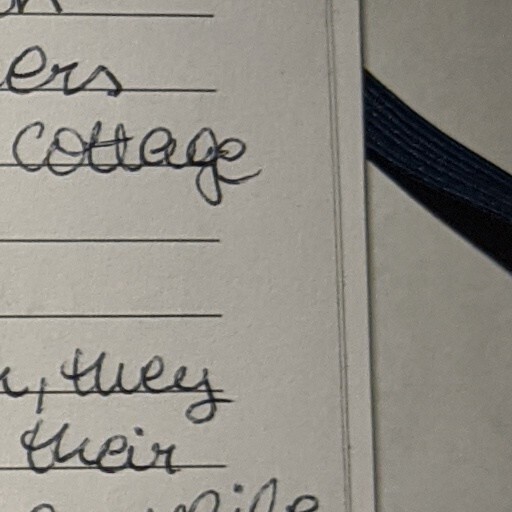 ers
cottage
, they
their